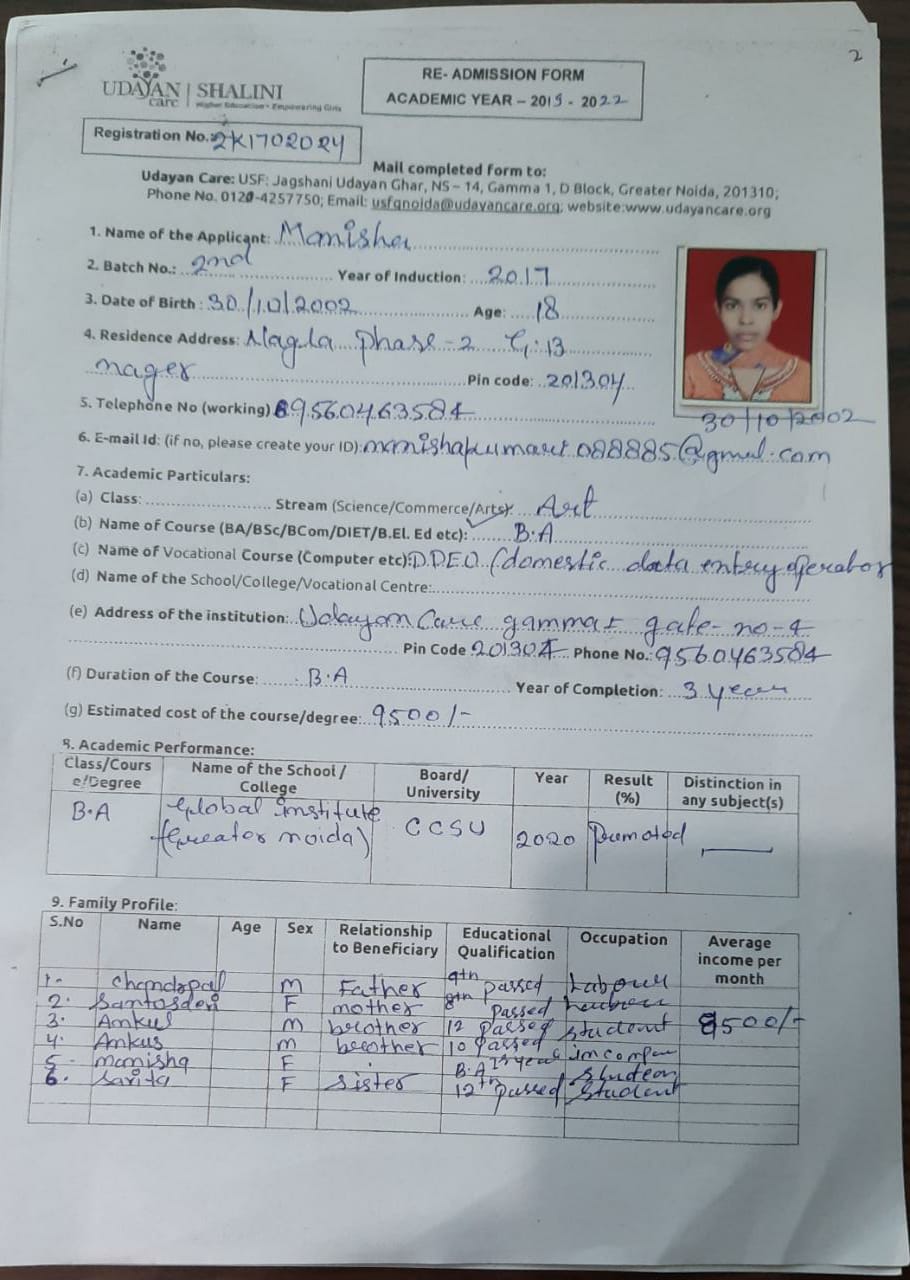 2
UDAYAN care | SHALINI
Higher Education • Empowering Girls
RE- ADMISSION FORM
ACADEMIC YEAR – 2019 - 2022
Registration No. 2K1702024
Mail completed form to:
Udayan Care: USF: Jagshani Udayan Ghar, NS – 14, Gamma 1, D Block, Greater Noida, 201310;
Phone No. 0120-4257750; Email: usfgnoida@udayancare.org; website:www.udayancare.org
1. Name of the Applicant: Manisha
2. Batch No.: 2nd Year of Induction: 2017
3. Date of Birth : 30/10/2002 Age: 18
4. Residence Address: Nagla Phase-2 G:13
nager Pin code: 201304
5. Telephone No (working) 9560463584
30/10/2002
6. E-mail Id: (if no, please create your ID): manishakumari088885@gmail.com
7. Academic Particulars:
(a) Class: Stream (Science/Commerce/Arts): Art
(b) Name of Course (BA/BSc/BCom/DIET/B.El. Ed etc): B.A
(c) Name of Vocational Course (Computer etc): D.D.E.O (domestic data entry operator
(d) Name of the School/College/Vocational Centre:
(e) Address of the institution: Udayan Care gamma gate-no-4
Pin Code 201304 Phone No.: 9560463584
(f) Duration of the Course: B.A Year of Completion: 3 year
(g) Estimated cost of the course/degree: 9500/-
8. Academic Performance:
Class/Course/Degree Name of the School / College Board/ University Year Result (%) Distinction in any subject(s)
B.A Global institute (Greator noida) CCSU 2020 Promoted —
9. Family Profile:
S.No Name Age Sex Relationship to Beneficiary Educational Qualification Occupation Average income per month
1- Chandrpal M Father 9th passed Labour
2. F mother 8th Passed
3. Ankul M brother 12 passed student 9500/-
4. Ankus M brother 10 passed
5- manisha F B.A student
6. Sarita F Sister 12th passed student